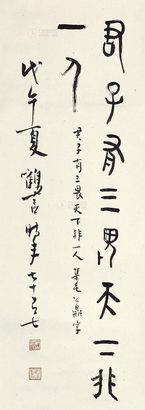 君子有三畏天下非
一人
君子有三畏天下非一人 集毛公鼎字
戊午夏 鹤言 时年七十又七